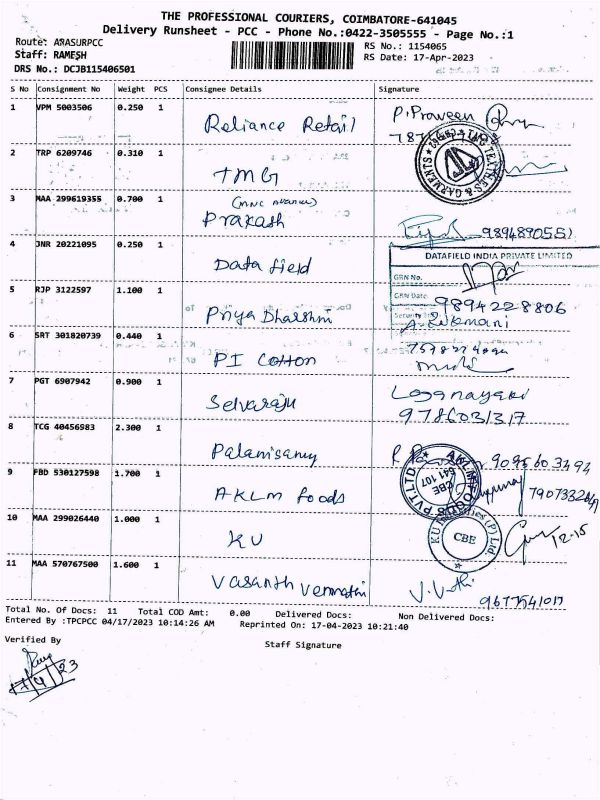 THE PROFESSIONAL COURIERS, COIMBATORE-641045
Delivery Runsheet - PCC - Phone No.:0422-3505555 - Page No.:1
Route: ARASURPCC
RS No.: 1154065
Staff: RAMESH
RS Date: 17-Apr-2023
DRS No.: DCJB115406501
S No Consignment No Weight PCS Consignee Details Signature
1 VPM 5003506 0.250 1 Reliance Retail P. Praveen
2 TRP 6209746 0.310 1 TMG
TEXTILES & GARMENTS
3 MAA 299619355 0.700 1 Prakash 9894890551
4 JNR 20221095 0.250 1 Data field
DATAFIELD INDIA PRIVATE LIMITED
GRN No.
GRN Date
5 RJP 3122597 1.100 1 Priya Dharshni 9894228806
6 SRT 301820739 0.440 1 PI Cotton
7 PGT 6907942 0.900 1 Selvaraju Loganayaki
9786031317
8 TCG 40456983 2.300 1 Palanisamy 9095603494
9 FBD 530127598 1.700 1 AKLM foods
AKLM FOODS PVT.LTD.
CBE
641 107
10 MAA 299026440 1.000 1 KU 12-15
CBE
11 MAA 570767500 1.600 1 Vasanth 9677541017
Total No. Of Docs: 11 Total COD Amt: 0.00 Delivered Docs: Non Delivered Docs:
Entered By :TPCPCC 04/17/2023 10:14:26 AM Reprinted On: 17-04-2023 10:21:40
Verified By
Staff Signature
17/4/23